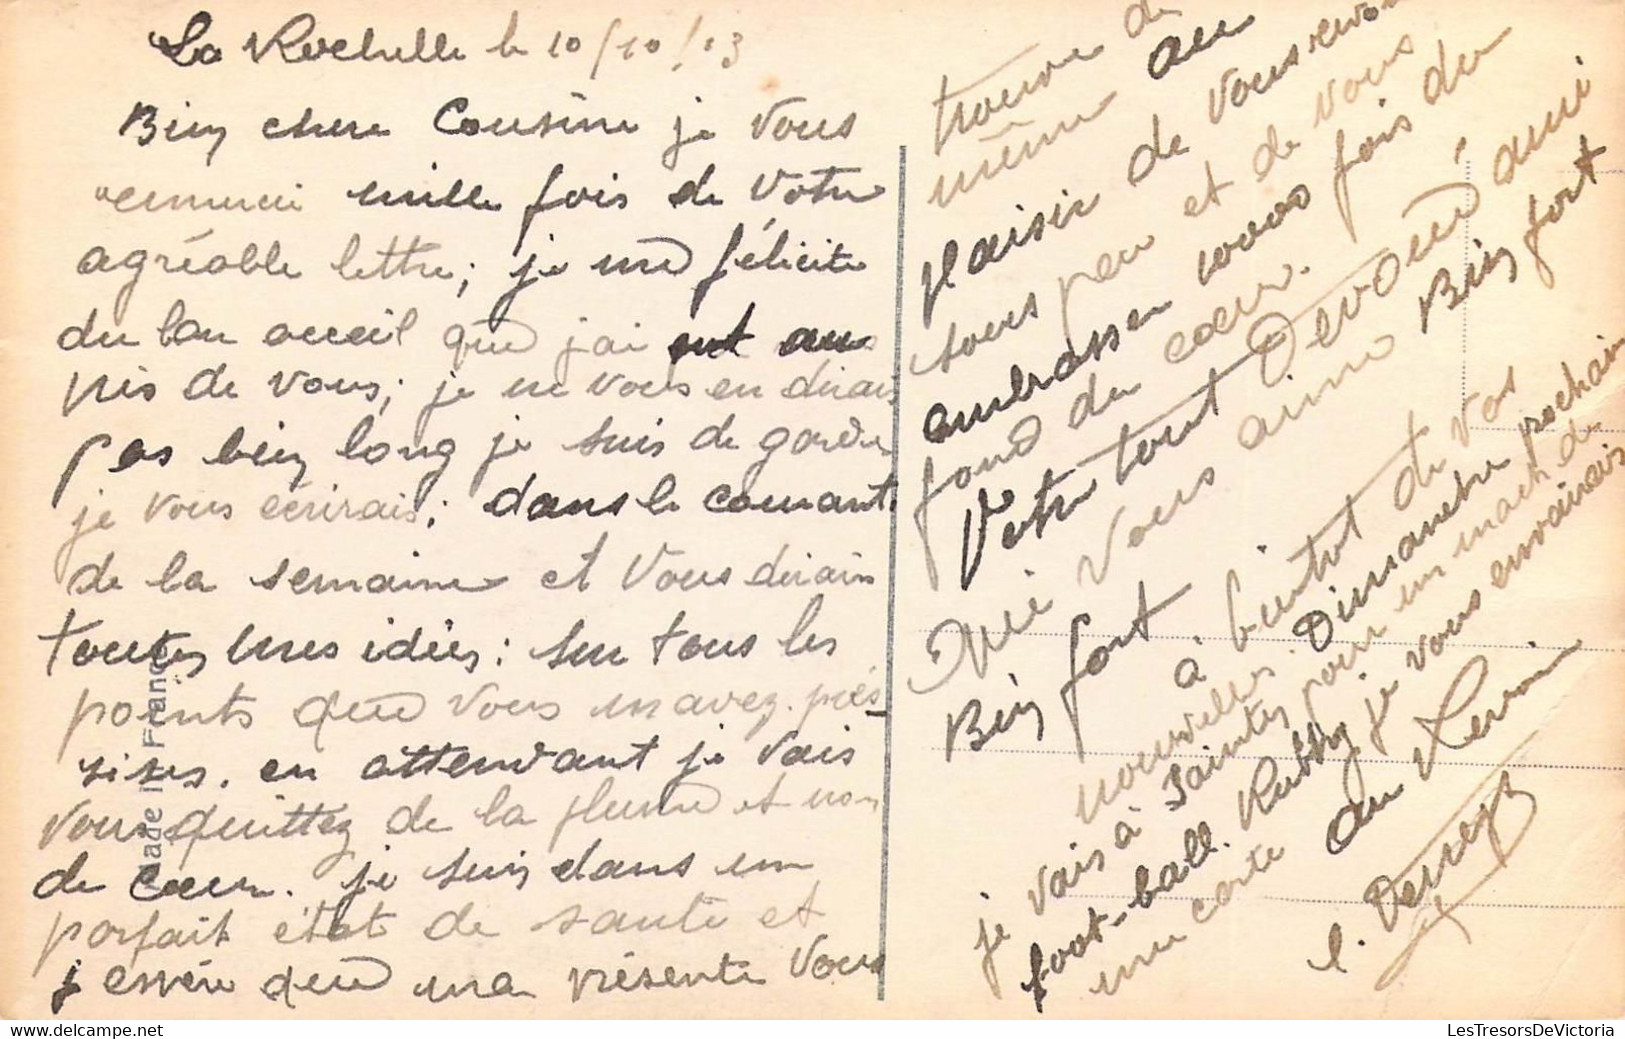 La Rochelle le 10/10/13
Bien chere Cousine je vous
remmerci mille fois de votre
agréable lettre; je me félicite
du bau acceil que j'ai eut au
près de vous; je ne vous en dirais
pas bien long je suis de garde
je vous ecrirais; dans le courant
de la semaine et vous dirais
toutes mes idées: sur tous les
points que vous m'avez prés-
sisés. en attendant je vais
vous quittez de la plume et non
de Cœur. je suis dans un
parfait état de santé et
j'espére que ma présente vous
trouve de
même au
plaisir de vous revoir
sous peu et de vous
embrasser 1000s fois du
fond du cœur.
Votre tout Devoué ami
Qui vous aime Bien fort
Bien fort
à bientot de vos
nouvelles. Dimanche prochain
je vais à Saintes pour un mach de
foot-ball. Rubby je vous envairais
une carte au
l.
Made in France
LesTresorsDeVictoria